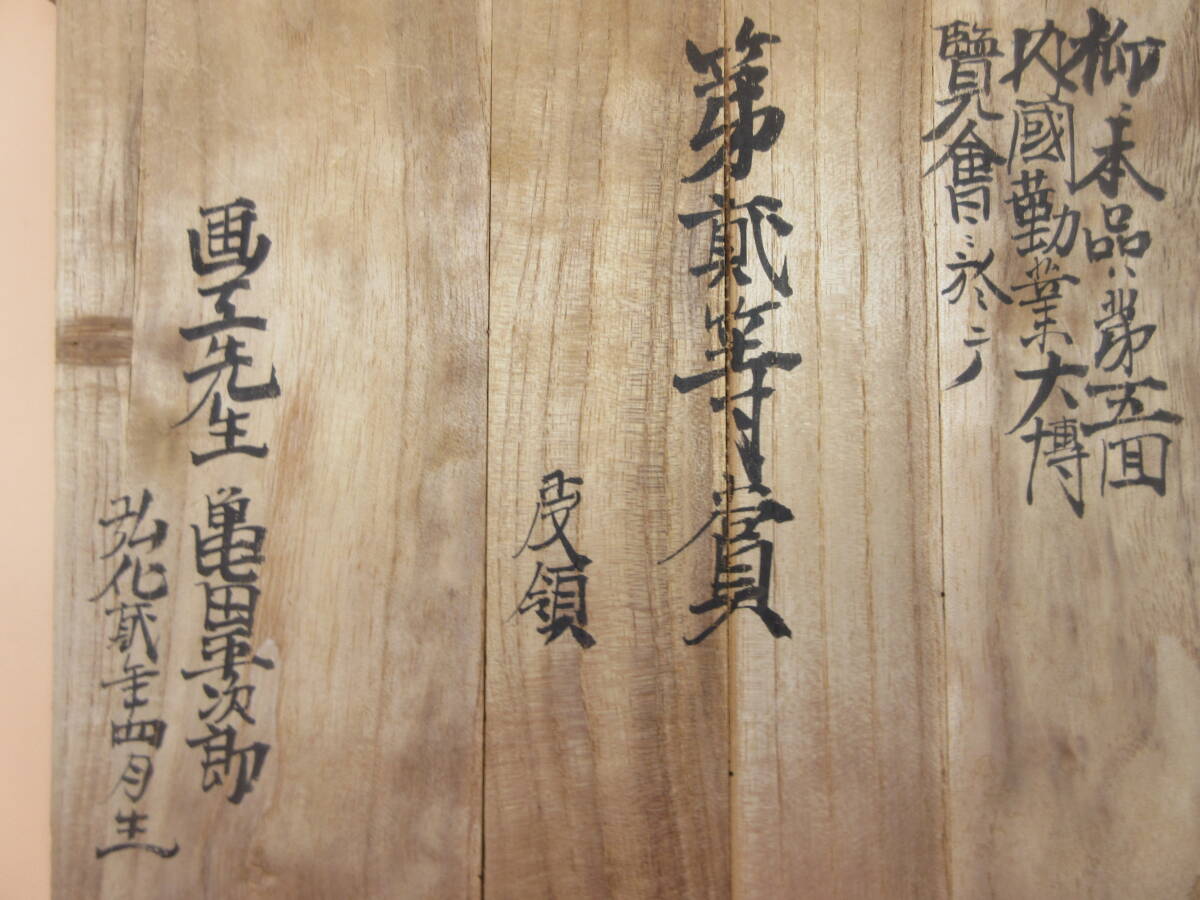 抑〻本品ハ第五回
内國勧業大博
覽會ニ於テ
第貳等賞
受領
画工先生 亀田平次郎
弘化貳年四月生